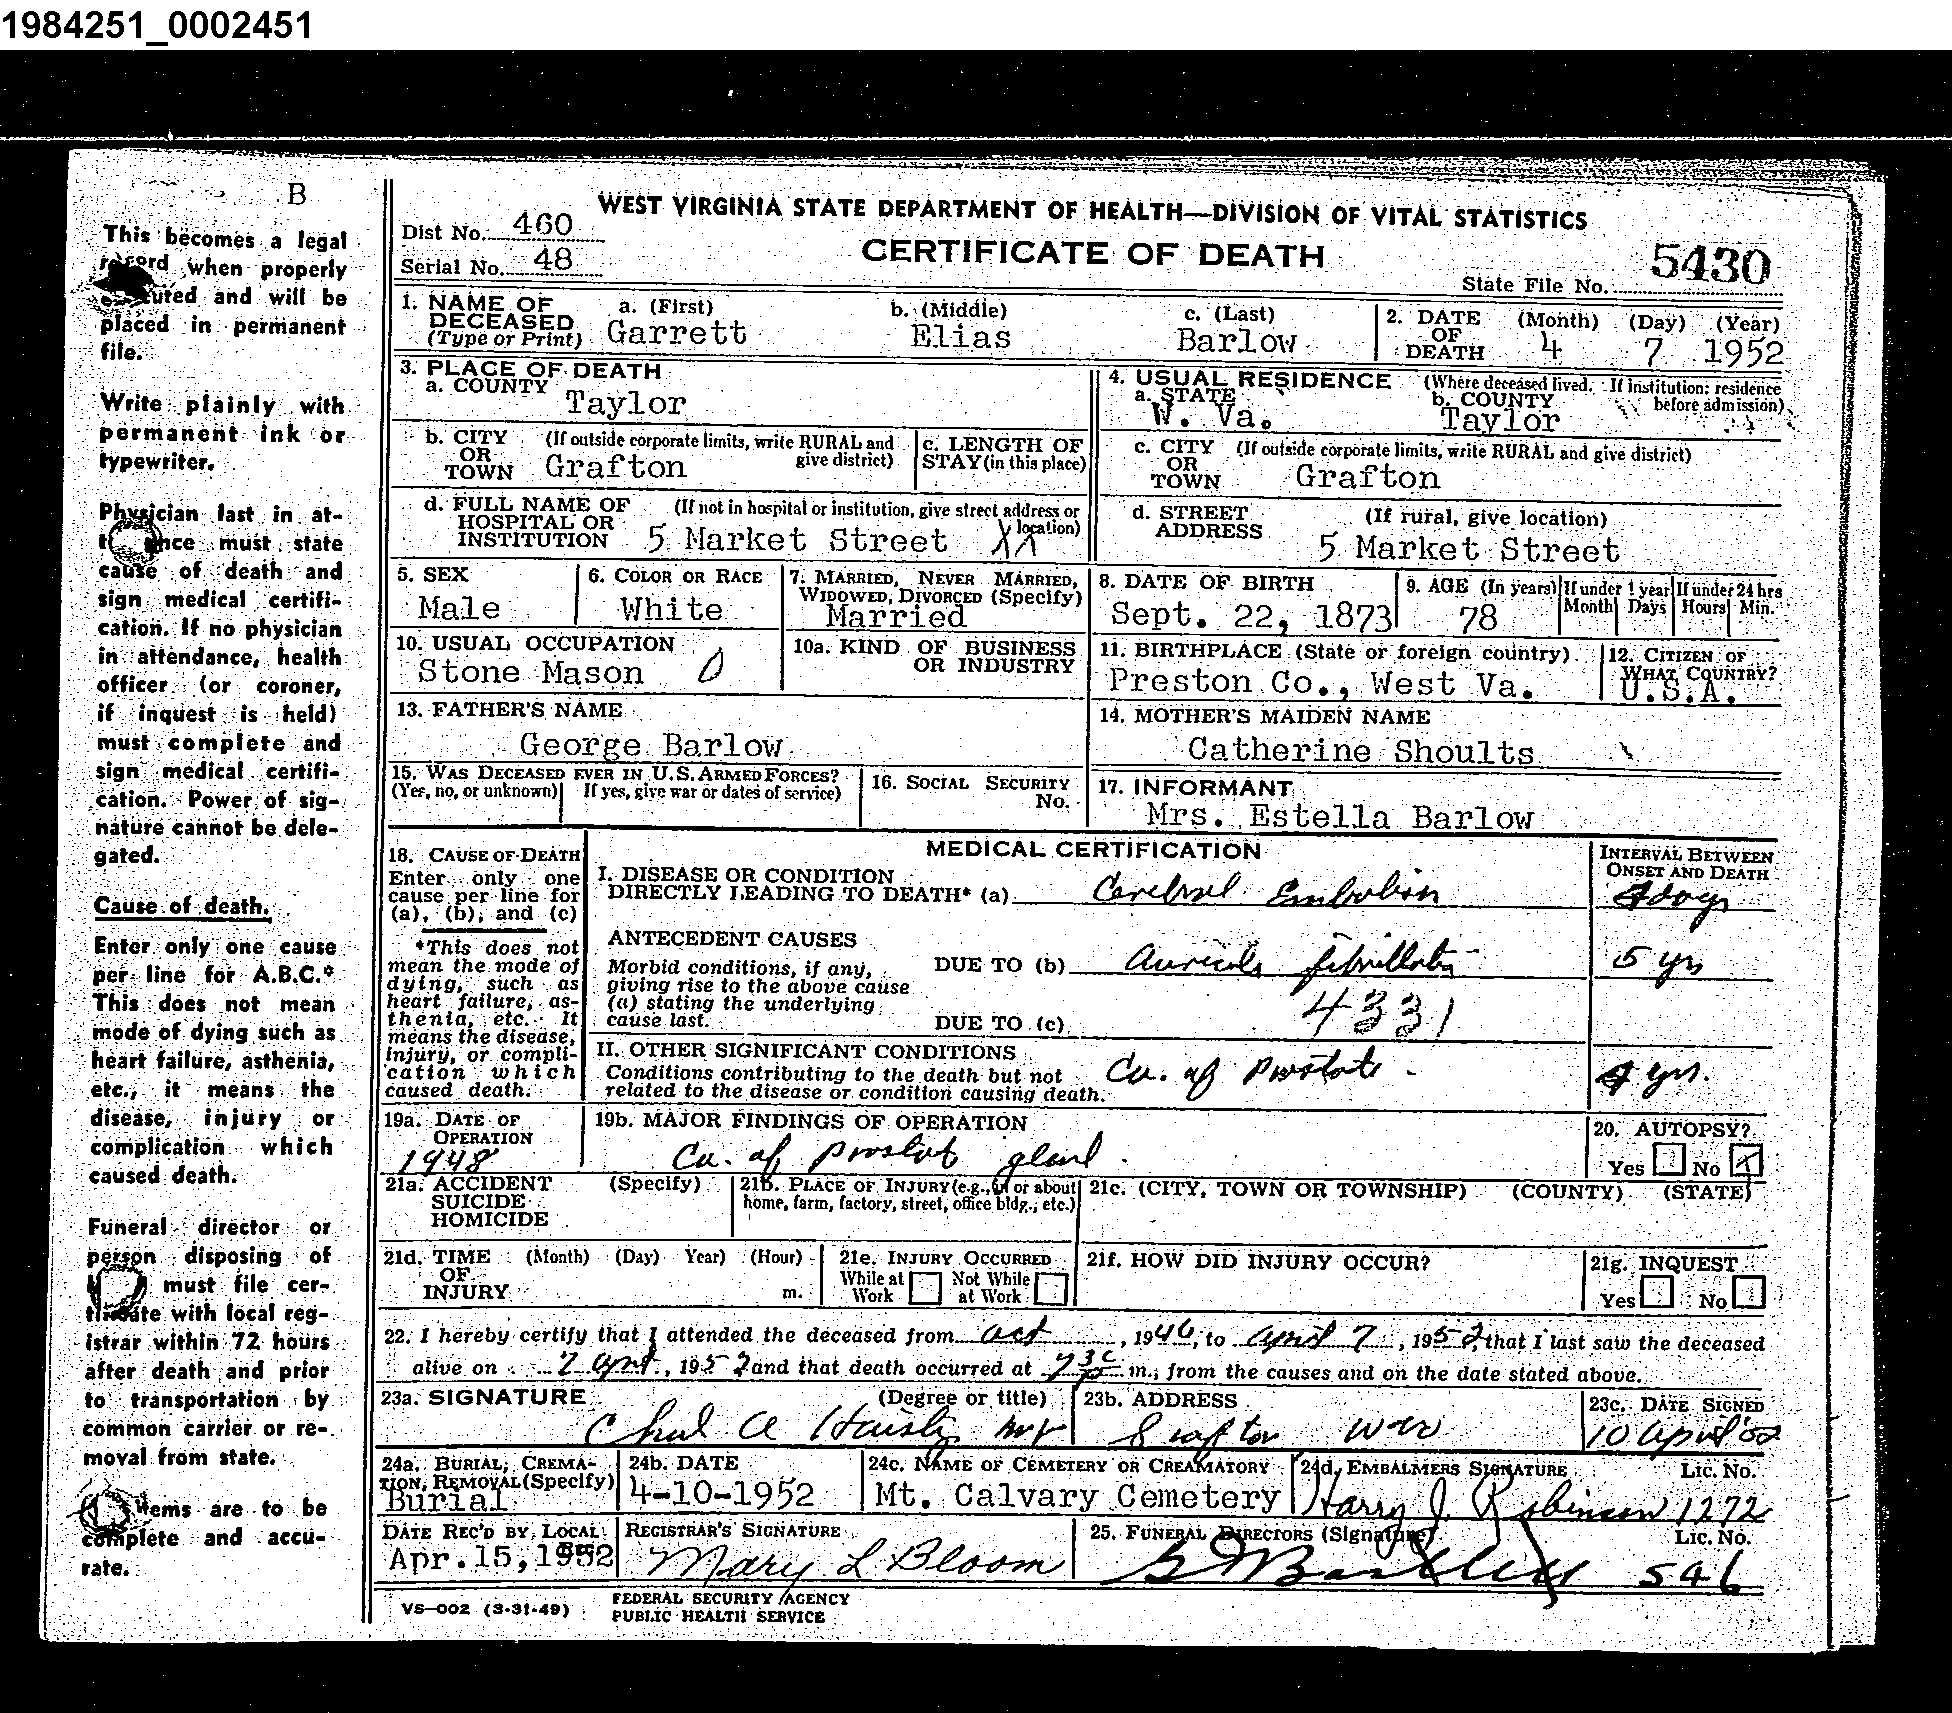 1984251_0002451
B
This becomes a legal
record when properly
executed and will be
placed in permanent
file.
Write plainly with
permanent ink or
typewriter.
Physician last in at-
must state
cause of death and
sign medical certifi-
cation. If no physician
in attendance, health
officer (or coroner,
if inquest is held)
must complete and
sign medical certifi-
cation. Power of sig-
nature cannot be dele-
gated.
Cause of death.
Enter only one cause
per line for A.B.C.*
This does not mean
mode of dying such as
heart failure, asthenia,
etc., it means the
disease, injury or
complication which
caused death.
Funeral director or
person disposing of
must file cer-
tificate with local reg-
istrar within 72 hours
after death and prior
to transportation by
common carrier or re-
moval from state.
items are to be
complete and accu-
rate.
WEST VIRGINIA STATE DEPARTMENT OF HEALTH—DIVISION OF VITAL STATISTICS
Dist No. 460
CERTIFICATE OF DEATH
Serial No. 48
State File No. 5430
1. NAME OF DECEASED (Type or Print) a. (First) Garrett b. (Middle) Elias c. (Last) Barlow
2. DATE OF DEATH (Month) 4 (Day) 7 (Year) 1952
3. PLACE OF DEATH
a. COUNTY Taylor
4. USUAL RESIDENCE (Where deceased lived. If institution: residence before admission)
a. STATE W. Va. b. COUNTY Taylor
b. CITY OR TOWN (If outside corporate limits, write RURAL and give district) Grafton
c. LENGTH OF STAY (in this place)
c. CITY OR TOWN (If outside corporate limits, write RURAL and give district) Grafton
d. FULL NAME OF HOSPITAL OR INSTITUTION (If not in hospital or institution, give street address or location) 5 Market Street XX
d. STREET ADDRESS (If rural, give location) 5 Market Street
5. SEX Male
6. COLOR OR RACE White
7. MARRIED, NEVER MARRIED, WIDOWED, DIVORCED (Specify) Married
8. DATE OF BIRTH Sept. 22, 1873
9. AGE (In years) 78 If under 1 year Month Days If under 24 hrs Hours Min.
10. USUAL OCCUPATION Stone Mason 0
10a. KIND OF BUSINESS OR INDUSTRY
11. BIRTHPLACE (State or foreign country) Preston Co., West Va.
12. CITIZEN OF WHAT COUNTRY? U.S.A.
13. FATHER'S NAME George Barlow
14. MOTHER'S MAIDEN NAME Catherine Shoults
15. WAS DECEASED EVER IN U.S. ARMED FORCES? (Yes, no, or unknown) If yes, give war or dates of service)
16. SOCIAL SECURITY No.
17. INFORMANT Mrs. Estella Barlow
MEDICAL CERTIFICATION
18. CAUSE OF DEATH
Enter only one
cause per line for
(a), (b), and (c)
*This does not
mean the mode of
dying, such as
heart failure, as-
thenia, etc. It
means the disease,
injury, or compli-
cation which
caused death.
I. DISEASE OR CONDITION
DIRECTLY LEADING TO DEATH* (a) Cerebral Embolism
INTERVAL BETWEEN ONSET AND DEATH
days
ANTECEDENT CAUSES
Morbid conditions, if any,
giving rise to the above cause
(a) stating the underlying
cause last.
DUE TO (b) Auricular fibrillation 5 yrs
4331
DUE TO (c)
II. OTHER SIGNIFICANT CONDITIONS
Conditions contributing to the death but not
related to the disease or condition causing death.
Ca. of Prostate. 4 yrs.
19a. DATE OF OPERATION 1948
19b. MAJOR FINDINGS OF OPERATION Ca. of prostate gland.
20. AUTOPSY? Yes No X
21a. ACCIDENT SUICIDE HOMICIDE (Specify)
21b. PLACE OF INJURY (e.g., in or about home, farm, factory, street, office bldg., etc.)
21c. (CITY, TOWN OR TOWNSHIP) (COUNTY) (STATE)
21d. TIME OF INJURY (Month) (Day) Year) (Hour) m.
21e. INJURY OCCURRED While at Work Not While at Work
21f. HOW DID INJURY OCCUR?
21g. INQUEST Yes No
22. I hereby certify that I attended the deceased from Oct, 1946, to April 7, 1952, that I last saw the deceased
alive on 7 April, 1952 and that death occurred at 7 30 m., from the causes and on the date stated above.
23a. SIGNATURE (Degree or title)
23b. ADDRESS Grafton W Va
23c. DATE SIGNED 10 April '52
24a. BURIAL, CREMATION, REMOVAL (Specify) Burial
24b. DATE 4-10-1952
24c. NAME OF CEMETERY OR CREAMATORY Mt. Calvary Cemetery
24d. EMBALMERS SIGNATURE Lic. No. Harry J. Robinson 1272
DATE REC'D BY LOCAL Apr. 15, 1952
REGISTRAR'S SIGNATURE Mary L Bloom
25. FUNERAL DIRECTORS (Signature) Lic. No. 546
VS—002 (3-31-49)
FEDERAL SECURITY AGENCY
PUBLIC HEALTH SERVICE